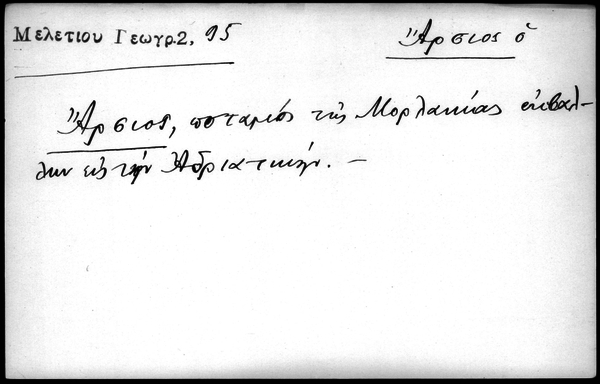 Μελετίου Γεωγρ. 2, 95
Ἄρσιος ὁ
Ἄρσιος, ποταμός τῆς Μορλακίας ἐκβάλ-
λων εἰς τήν Ἀδριατικήν. –